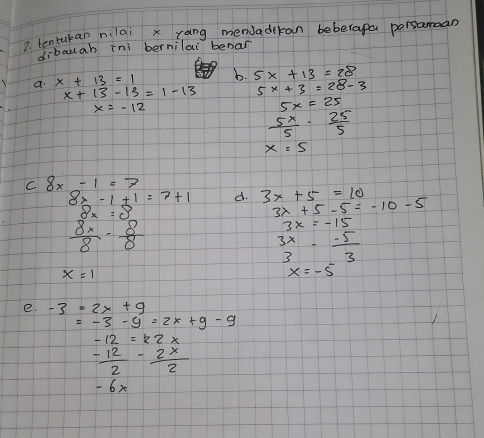 2. tentukan nilai x yang menjadikan beberapa persamaan
dibawah ini bernilai benar
a. x + 13 = 1
x + 13 - 13 = 1 - 13
x = -12
b. 5x + 13 = 28
5x + 3 = 28 - 3
5x = 25
5x/5 - 25/5
x = 5
c. 8x - 1 = 7
8x - 1 + 1 = 7 + 1
8x = 8
8x/8 - 8/8
x = 1
d. 3x + 5 = 10
3x + 5 - 5 = -10 - 5
3x = -15
3x/3 - -5/3
x = -5
e. -3 = 2x + 9
= -3 - 9 = 2x + 9 - 9
-12 = 2x
-12/2 - 2x/2
- 6x